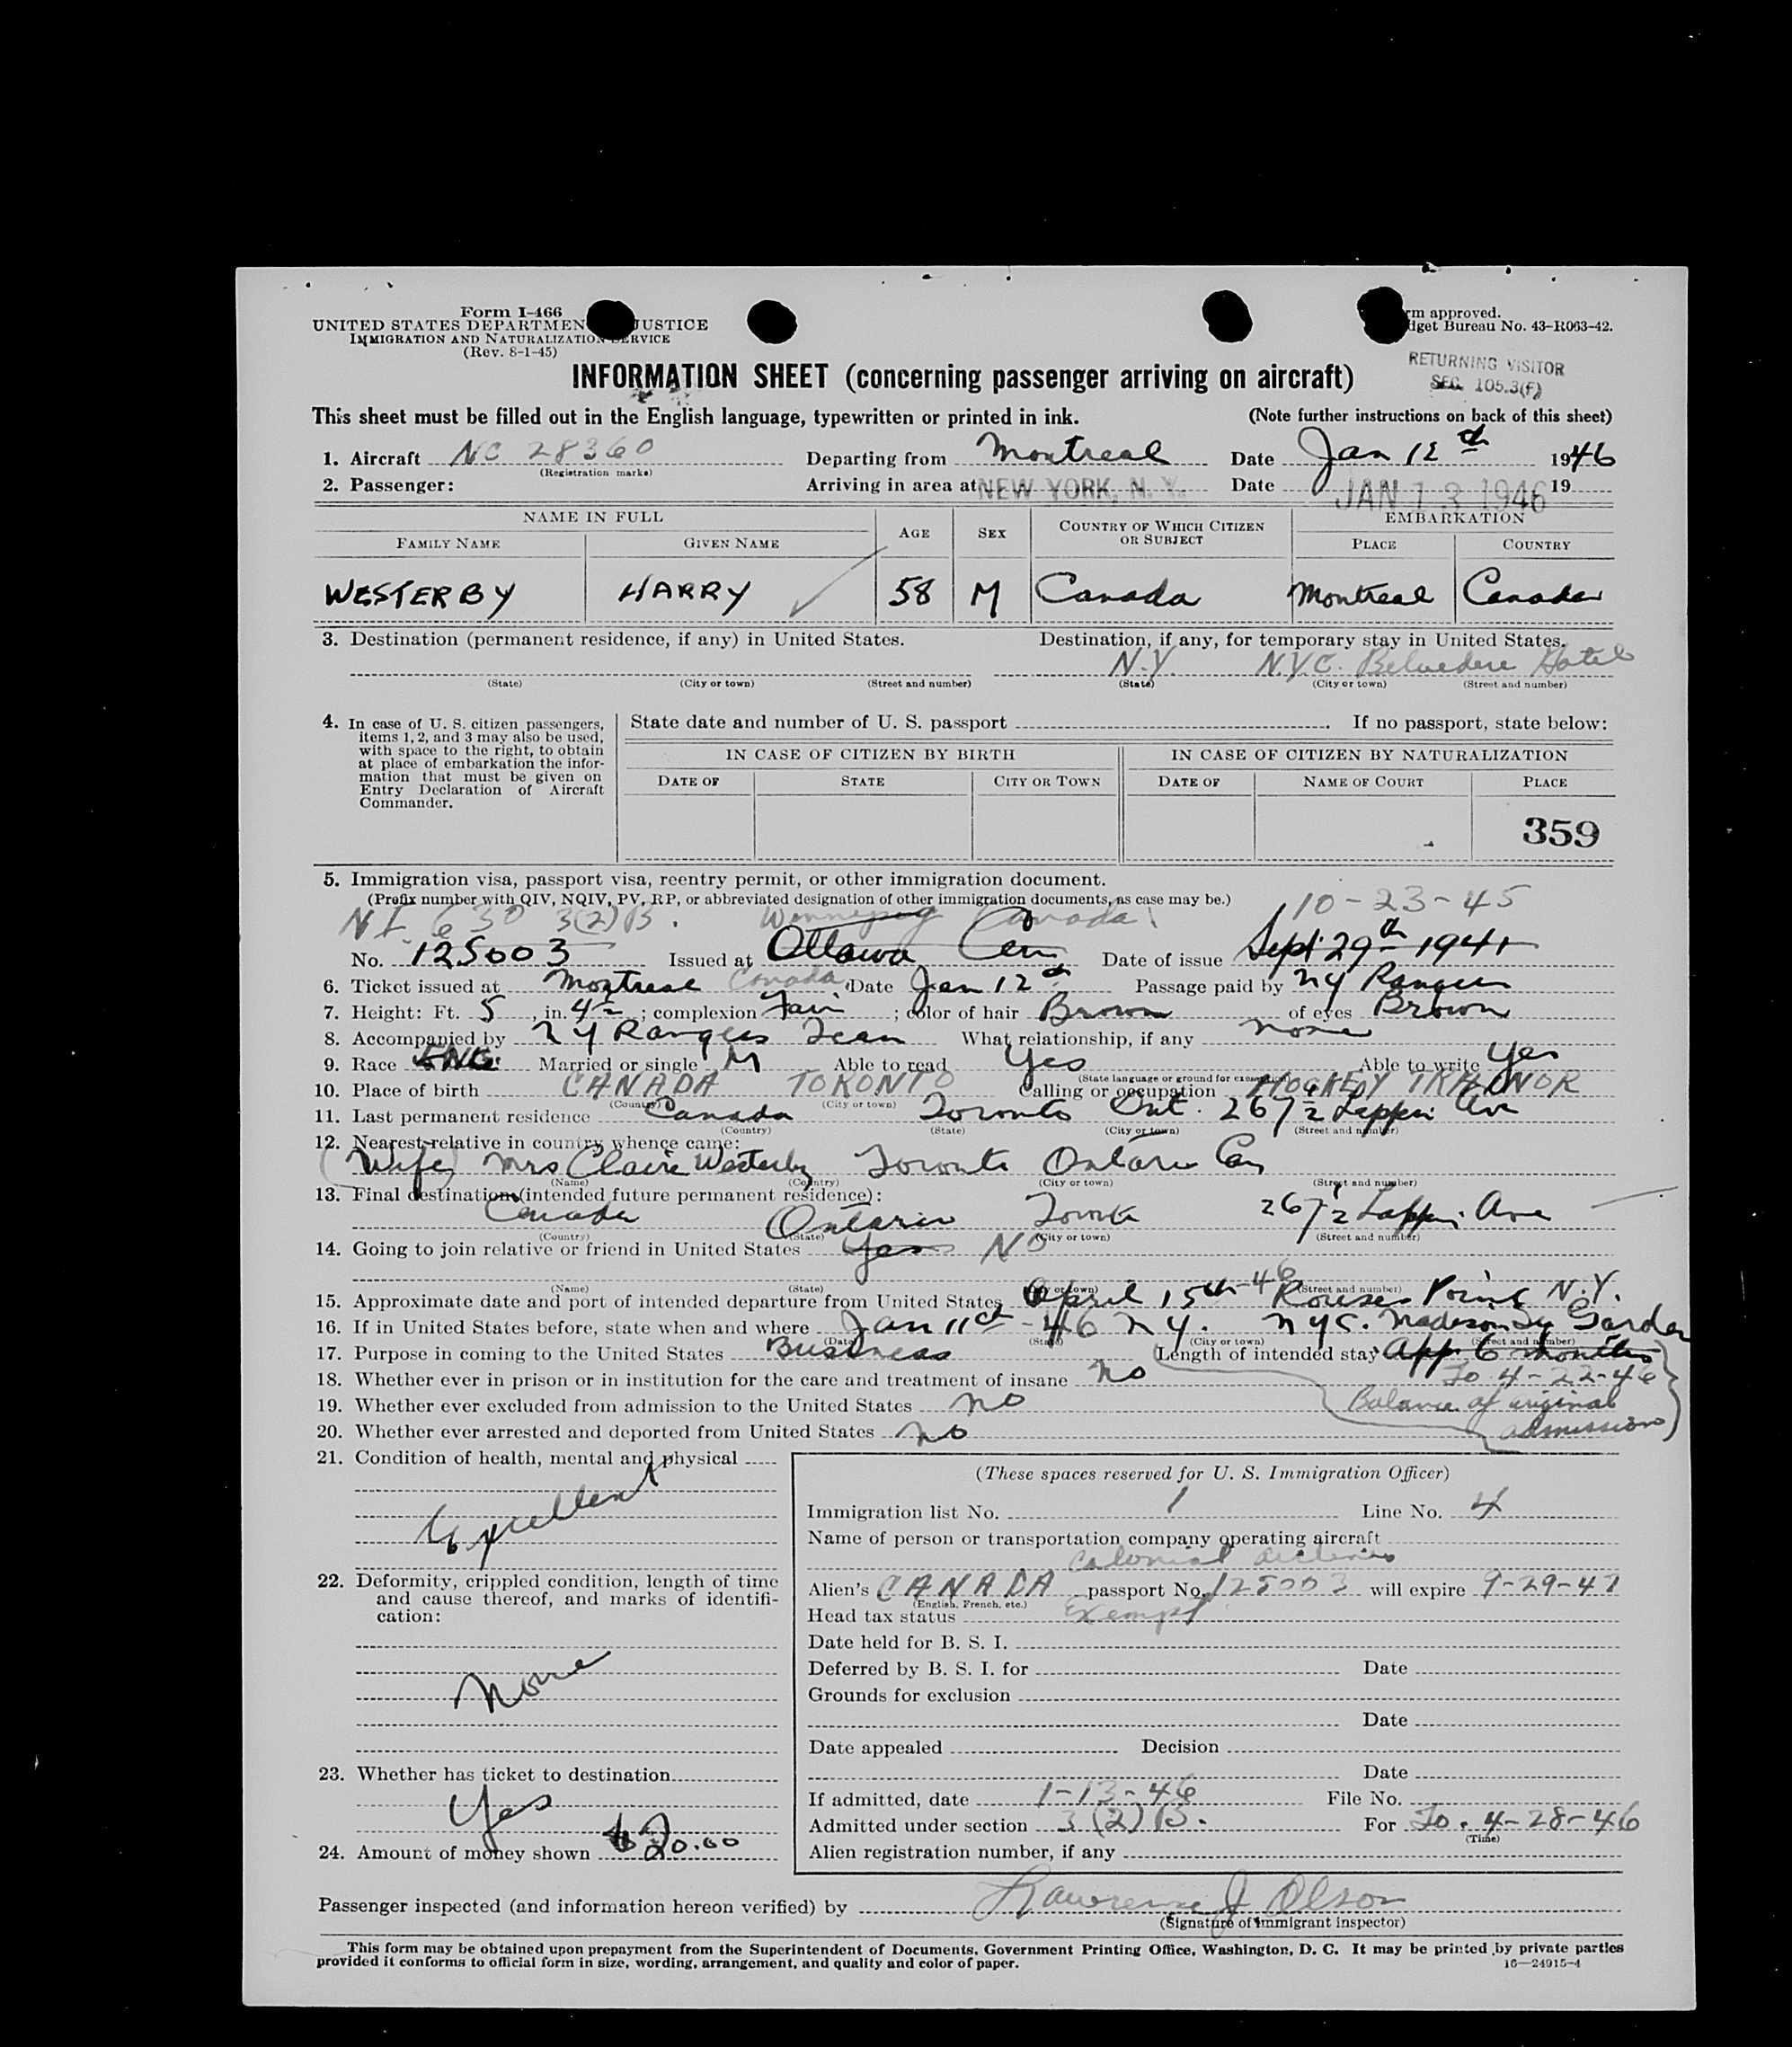 Form I-466
UNITED STATES DEPARTMEN JUSTICE
IMMIGRATION AND NATURALIZATION SERVICE
(Rev. 8-1-45)
rm approved.
dget Bureau No. 43-R063-42.
INFORMATION SHEET (concerning passenger arriving on aircraft)
RETURNING VISITOR
SEC. 105.3(F)
This sheet must be filled out in the English language, typewritten or printed in ink. (Note further instructions on back of this sheet)
1. Aircraft NC 28360 Departing from Montreal Date Jan 12th 1946
(Registration marks)
2. Passenger: Arriving in area at NEW YORK, N. Y. Date JAN 13 1946 19
NAME IN FULL AGE SEX COUNTRY OF WHICH CITIZEN OR SUBJECT EMBARKATION
FAMILY NAME GIVEN NAME PLACE COUNTRY
WESTERBY HARRY 58 M Canada Montreal Canada
3. Destination (permanent residence, if any) in United States. Destination, if any, for temporary stay in United States.
N.Y. N.Y.C. Belvedere Hotel
(State) (City or town) (Street and number) (State) (City or town) (Street and number)
4. In case of U. S. citizen passengers, items 1, 2, and 3 may also be used, with space to the right, to obtain at place of embarkation the information that must be given on Entry Declaration of Aircraft Commander.
State date and number of U. S. passport . If no passport, state below:
IN CASE OF CITIZEN BY BIRTH IN CASE OF CITIZEN BY NATURALIZATION
DATE OF STATE CITY OR TOWN DATE OF NAME OF COURT PLACE
359
5. Immigration visa, passport visa, reentry permit, or other immigration document.
(Prefix number with QIV, NQIV, PV, RP, or abbreviated designation of other immigration documents, as case may be.)
N.I. 630 3(2)B. Winnipeg Canada 10-23-45
No. 125003 Issued at Ottawa Can Date of issue Sept 29th 1941
6. Ticket issued at Montreal Canada Date Jan 12th Passage paid by NY Rangers
7. Height: Ft. 5, in. 4½; complexion Fair; color of hair Brown of eyes Brown
8. Accompanied by NY Rangers Team What relationship, if any none
9. Race ENG. Married or single M Able to read Yes Able to write Yes
(State language or ground for exemption)
10. Place of birth CANADA TORONTO Calling or occupation HOCKEY TRAINOR
(Country) (City or town)
11. Last permanent residence Canada Toronto Ont. 267½ Lappin Ave
(Country) (State) (City or town) (Street and number)
12. Nearest relative in country whence came:
(Wife) Mrs Claire Westerby Toronto Ontario Can
(Name) (Country) (City or town) (Street and number)
13. Final destination (intended future permanent residence):
Canada Ontario Toronto 267½ Lappin Ave
(Country) (State) (City or town) (Street and number)
14. Going to join relative or friend in United States Yes NO
(Name) (State) (City or town) (Street and number)
15. Approximate date and port of intended departure from United States April 15th-46 Rouses Point N.Y.
16. If in United States before, state when and where Jan 11th-46 NY. NYC. Madison Sq Garden
(Date) (State) (City or town) (Street and number)
17. Purpose in coming to the United States Business Length of intended stay App. 6 months
To 4-22-46
18. Whether ever in prison or in institution for the care and treatment of insane no
Balance of original admission
19. Whether ever excluded from admission to the United States no
20. Whether ever arrested and deported from United States no
21. Condition of health, mental and physical
Excellent
22. Deformity, crippled condition, length of time and cause thereof, and marks of identification:
None
23. Whether has ticket to destination
Yes
24. Amount of money shown $20.00
(These spaces reserved for U. S. Immigration Officer)
Immigration list No. 1 Line No. 4
Name of person or transportation company operating aircraft
Colonial Airlines
Alien's CANADA passport No. 125003 will expire 9-29-47
(English, French, etc.)
Head tax status Exempt
Date held for B. S. I.
Deferred by B. S. I. for Date
Grounds for exclusion
Date
Date appealed Decision
Date
If admitted, date 1-13-46 File No.
Admitted under section 3(2)B. For To. 4-28-46
(Time)
Alien registration number, if any
Passenger inspected (and information hereon verified) by Lawrence J Olson
(Signature of immigrant inspector)
This form may be obtained upon prepayment from the Superintendent of Documents, Government Printing Office, Washington, D. C. It may be printed by private parties
provided it conforms to official form in size, wording, arrangement, and quality and color of paper.
16—24915-4